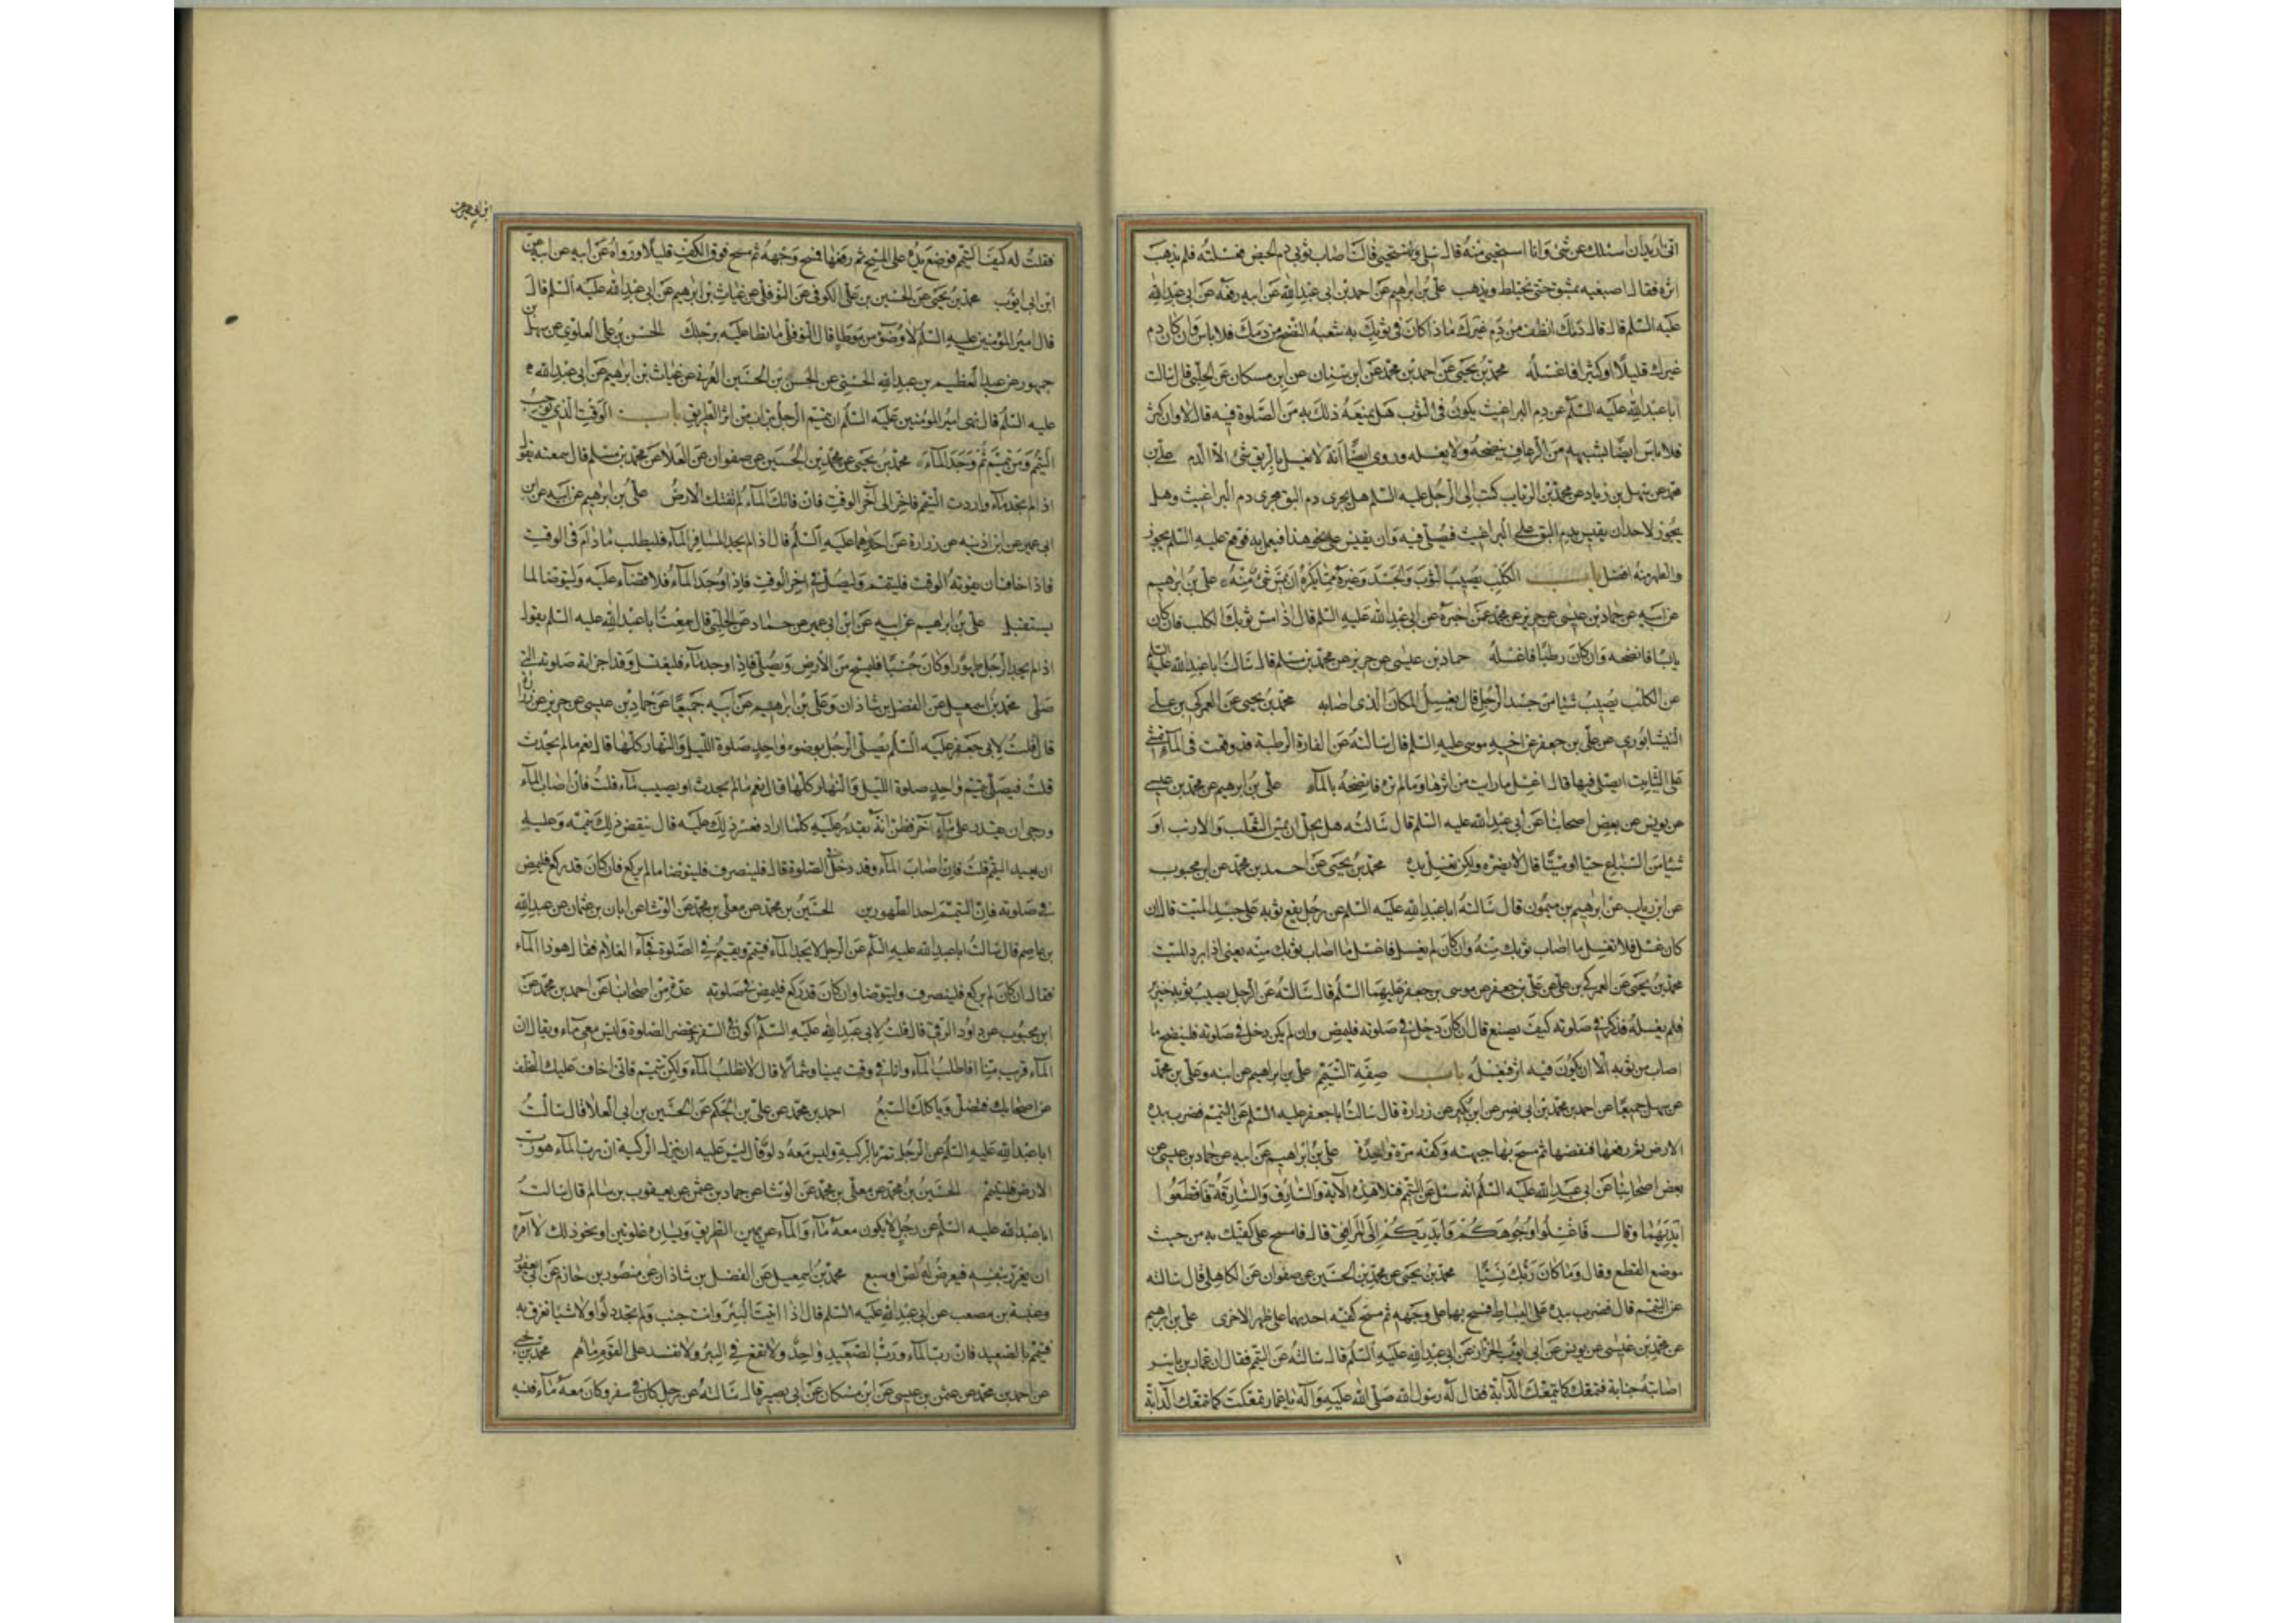 انی ارید ان اسئلک عن شئ وانا استحیی منه قال سلی ولا تستحیی قالت اصاب ثوبی دم الحیض فغسلته فلم یذهب
اثره فقال اصبغیه بمشق حتی یختلط ویذهب علی بن ابرهیم عن احمد بن ابی عبدالله عن ابیه رفعه عن ابی عبدالله
علیه السلم قال قال دمک انظف من دم غیرک اذا کان فی ثوبک به شعبه النضح من دمک فلا باس وان کان دم
غیرک قلیلا او کثیرا فاغسله محمد بن یحیی عن احمد بن محمد عن ابن سنان عن ابن مسکان عن الحلبی قال سالت
اباعبدالله علیه السلم عن دم البراغیث یکون فی الثوب هل یمنعه ذلک به من الصلوة فیه قال لا وان کثر
فلا باس ایضا بشبهه من الرعاف ینضحه ولا یغسله وروی ایضا انه لا یغسل بالریق شئ الا الدم علی بن
محمد عن سهل بن زیاد عن محمد بن الریاب کتب الی الرجل علیه السلم هل یجری دم البق مجری دم البراغیث وهل
یجوز لاحد ان یقیس بدم البق علی البراغیث فیصلی فیه وان یقیس علی نحو هذا فیعمل به فوقع علیه السلم یجوز
والطهر منه افضل باب الکلب یصیب الثوب والجسد وغیره مما یکره ان یمس شئ منه علی بن ابرهیم
عن ابیه عن حماد بن عیسی عن حریز عن محمد عمن اخبره عن ابی عبدالله علیه السلم قال اذا مس ثوبک الکلب فان کان
یابسا فانضحه وان کان رطبا فاغسله حماد بن عیسی عن حریز عن محمد بن مسلم قال سالت اباعبدالله علیه السلم
عن الکلب یصیب شیئا من جسد الرجل قال یغسل المکان الذی اصابه محمد بن یحیی عن العمرکی بن علی
النیشابوری عن علی بن جعفر عن اخیه موسی علیه السلم قال سالته عن الفارة الرطبة قد وقعت فی الماء تمشی
علی الثیاب ایصلی فیها قال اغسل ما رایت من اثرها وما لم تره فانضحه بالماء علی بن ابرهیم عن محمد بن عیسی
عن یونس عن بعض اصحابنا عن ابی عبدالله علیه السلم قال سالته هل یحل ان یمس الثعلب والارنب او
شیئا من السباع حیا او میتا قال لا یضره ولکن یغسل یده محمد بن یحیی عن احمد بن محمد عن ابن محبوب
عن ابن ریاب عن ابرهیم بن میمون قال سالته اباعبدالله علیه السلم عن رجل یقع ثوبه علی جسد المیت قال ان
کان غسل فلا تغسل ما اصاب ثوبک منه وان کان لم یغسل فاغسل ما اصاب ثوبک منه یعنی اذا برد المیت
محمد بن یحیی عن العمرکی بن علی عن علی بن جعفر عن موسی بن جعفر علیهما السلم قال سالته عن الرجل یصیب ثوبه خنزیر
فلم یغسله فذکر فی صلوته کیف یصنع قال ان کان دخل فی صلوته فلیمض وان لم یکن دخل فی صلوته فلینضح ما
اصاب من ثوبه الا ان یکون فیه اثر فیغسله باب صفة التیمم علی بن ابراهیم عن ابیه وعلی بن محمد
عن سهل جمیعا عن احمد بن محمد بن ابی نصر عن ابن بکیر عن زرارة قال سالت اباجعفر علیه السلم عن التیمم فضرب بیده
الارض ثم رفعها فنفضها ثم مسح بها جبهته وکفیه مرة واحدة علی بن ابراهیم عن ابیه عن حماد بن عیسی عن
بعض اصحابنا عن ابی عبدالله علیه السلم انه سئل عن التیمم فتلا هذه الآیة والسارق والسارقة فاقطعوا
ایدیهما وقال فاغسلوا وجوهکم وایدیکم الی المرافق قال فامسح علی کفیک به من حیث
موضع القطع وقال وما کان ربک نسیا محمد بن یحیی عن محمد بن الحسین عن صفوان عن الکاهلی قال سالته
عن التیمم قال فضرب بیده علی البساط فمسح بها علی وجهه ثم مسح کفیه احدیهما علی ظهر الاخری علی بن ابرهیم
عن محمد بن عیسی عن یونس عن ابی ایوب الخزاز عن ابی عبدالله علیه السلم قال سالته عن التیمم فقال ان عمار بن یاسر
اصابته جنابة فتمعک کما تتمعک الدابة فقال له رسول الله صلی الله علیه وآله یا عمار تمعکت کما تتمعک الدابة
فقلت له کیف التیمم فوضع یده علی المسح ثم رفعها فمسح وجهه ثم مسح فوق الکف قلیلا ورواه عن ابیه عن ابیه عن
ابن ابی عمیر عن
ابن ابی ایوب محمد بن یحیی عن الحسین بن علی الکوفی عن النوفلی عن غیاث بن ابرهیم عن ابی عبدالله علیه السلم قال
قال امیر المؤمنین علیه السلم لا وضوء من موطا قال النوفلی ما تطا علیه برجلک الحسن بن علی العلوی عن سهل بن
جمهور عن عبد العظیم بن عبدالله الحسنی عن الحسن بن الحسین العرنی عن غیاث بن ابرهیم عن ابی عبدالله
علیه السلم قال نهی امیر المومنین علیه السلم ان یتیمم الرجل بتراب من اثر الطریق باب الوقت الذی یوجب
التیمم ومن تیمم ثم وجد الماء محمد بن یحیی عن محمد بن الحسین عن صفوان عن العلا عن محمد بن مسلم قال سمعته یقول
اذا لم تجد ماء واردت التیمم فاخر الی آخر الوقت فان فاتک الماء لم تفتک الارض علی بن ابرهیم عن ابیه عن ابن
ابی عمیر عن ابن اذینه عن زرارة عن احدهما علیه السلم قال اذا لم یجد المسافر الماء فلیطلب ما دام فی الوقت
فاذا خاف ان یفوته الوقت فلیتیمم ولیصل فی اخر الوقت فاذا وجد الماء فلا قضاء علیه ولیتوضا لما
یستقبل علی بن ابراهیم عن ابیه عن ابن ابی عمیر عن حماد عن الحلبی قال سمعت اباعبدالله علیه السلم یقول
اذا لم یجد الرجل طهورا وکان جنبا فلیمسح من الارض ویصلی فاذا وجد ماء فلیغتسل وقد اجزاته صلوته التی
صلی محمد بن اسمعیل عن الفضل بن شاذان وعلی بن ابراهیم عن ابیه جمیعا عن حماد بن عیسی عن حریز عن زرارة
قال قلت لابی جعفر علیه السلم یصلی الرجل بوضوء واحد صلوة اللیل والنهار کلها قال نعم ما لم یحدث
قلت فیصلی بتیمم واحد صلوة اللیل والنهار کلها قال نعم ما لم یحدث او یصیب ماء قلت فان اصاب الماء
ورجی ان یقدر علی ماء آخر فظن انه یقدر علیه کلما اراد فعسر ذلک علیه قال ینقض ذلک تیممه وعلیه
ان یعید التیمم قلت فان اصاب الماء وقد دخل فی الصلوة قال فلینصرف فلیتوضا ما لم یرکع فان کان قد رکع فلیمض
فی صلوته فان التیمم احد الطهورین الحسین بن محمد عن معلی بن محمد عن الوشا عن ابان بن عثمان عن عبدالله
بن عاصم قال سالت اباعبدالله علیه السلم عن الرجل لا یجد الماء فیتیمم ویقیم فی الصلوة فجاء الغلام فقال هوذا الماء
فقال ان کان لم یرکع فلینصرف ولیتوضا وان کان قد رکع فلیمض فی صلوته عدة من اصحابنا عن احمد بن محمد عن
ابن محبوب عن داود الرقی قال قلت لابی عبدالله علیه السلم اکون فی السفر وتحضر الصلوة ولیس معی ماء ویقال ان
الماء قریب منا افاطلب الماء وانا فی وقت یمینا وشمالا قال لا تطلب الماء ولکن تیمم فانی اخاف علیک التخلف
عن اصحابک فتضل ویاکلک السبع احمد بن محمد عن علی بن الحکم عن الحسین بن ابی العلا قال سالت
اباعبدالله علیه السلم عن الرجل تمر بالرکیة ولیس معه دلو قال لیس علیه ان ینزل الرکیة ان رب الماء هو رب
الارض فلیتیمم الحسین بن محمد عن معلی بن محمد عن الوشا عن حماد بن عثمن عن یعقوب بن سالم قال سالت
اباعبدالله علیه السلم عن رجل لا یکون معه ماء والماء عن یمین الطریق ویساره غلوتین او نحو ذلک قال لا آمره
ان یغرر بنفسه فیعرض له لص او سبع محمد بن اسمعیل عن الفضل بن شاذان عن منصور بن حازم عن ابن ابی یعفور
وعنبة بن مصعب عن ابی عبدالله علیه السلم قال اذا اتیت البئر وانت جنب ولم تجد دلوا ولا شیئا تغرف به
فتیمم بالصعید فان رب الماء ورب الصعید واحد ولا تقع فی البئر ولا تفسد علی القوم ماءهم محمد بن یحیی
عن احمد بن محمد عن عثمن بن عیسی عن ابن مسکان عن ابی بصیر قال سالته عن رجل کان فی سفر وکان معه ماء فنسیه